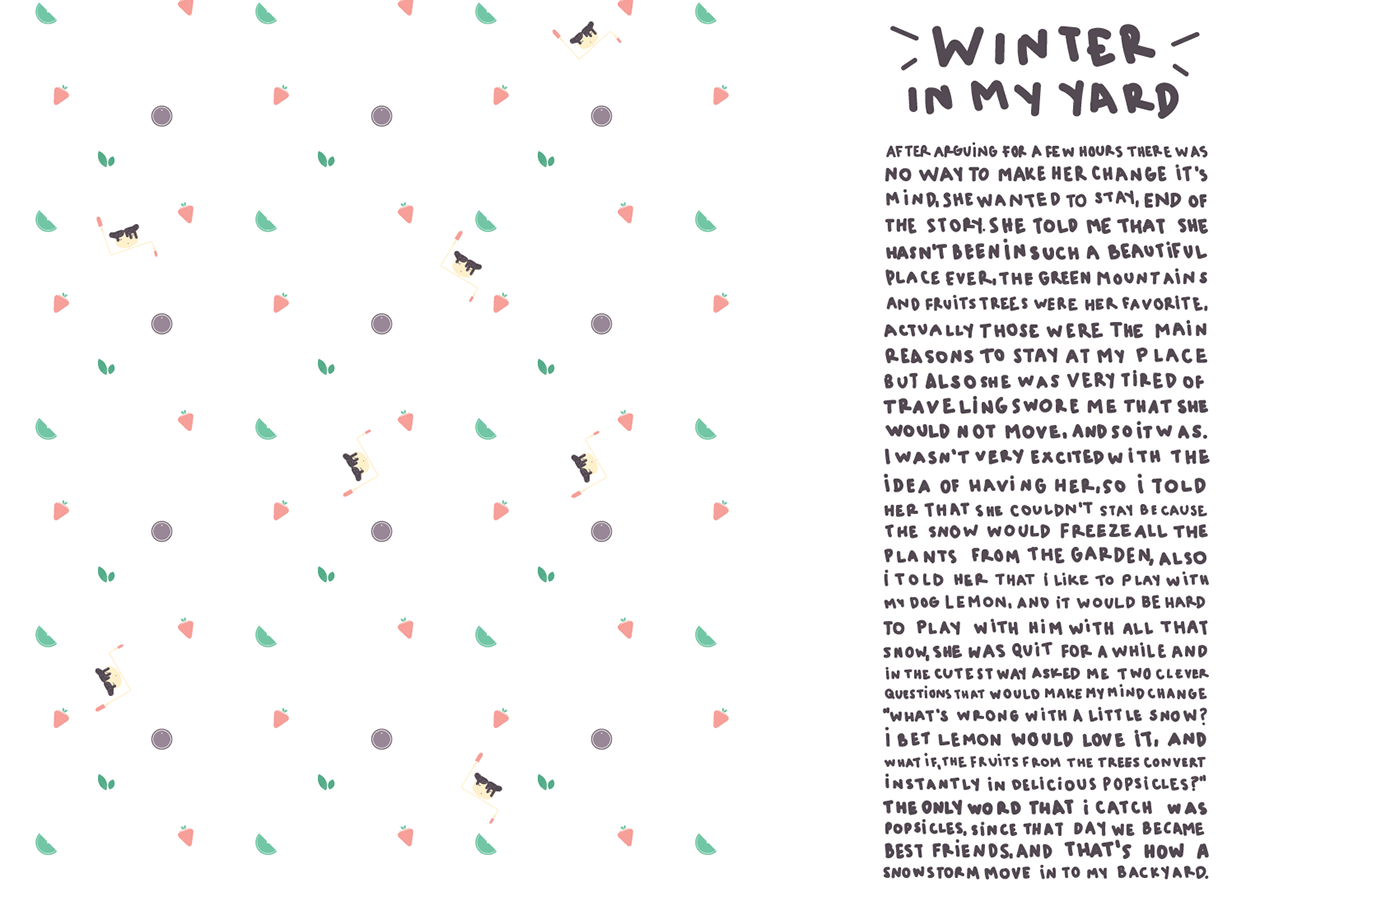 WINTER
IN MY YARD
AFTER ARGUING FOR A FEW HOURS THERE WAS
NO WAY TO MAKE HER CHANGE IT'S
MIND, SHE WANTED TO STAY, END OF
THE STORY. SHE TOLD ME THAT SHE
HASN'T BEEN IN SUCH A BEAUTIFUL
PLACE EVER, THE GREEN MOUNTAINS
AND FRUITS TREES WERE HER FAVORITE.
ACTUALLY THOSE WERE THE MAIN
REASONS TO STAY AT MY PLACE
BUT ALSO SHE WAS VERY TIRED OF
TRAVELING SWORE ME THAT SHE
WOULD NOT MOVE. AND SO IT WAS.
I WASN'T VERY EXCITED WITH THE
IDEA OF HAVING HER, SO I TOLD
HER THAT SHE COULDN'T STAY BECAUSE
THE SNOW WOULD FREEZE ALL THE
PLANTS FROM THE GARDEN, ALSO
I TOLD HER THAT I LIKE TO PLAY WITH
MY DOG LEMON, AND IT WOULD BE HARD
TO PLAY WITH HIM WITH ALL THAT
SNOW, SHE WAS QUIT FOR A WHILE AND
IN THE CUTEST WAY ASKED ME TWO CLEVER
QUESTIONS THAT WOULD MAKE MY MIND CHANGE
"WHAT'S WRONG WITH A LITTLE SNOW?
I BET LEMON WOULD LOVE IT, AND
WHAT IF, THE FRUITS FROM THE TREES CONVERT
INSTANTLY IN DELICIOUS POPSICLES?"
THE ONLY WORD THAT I CATCH WAS
POPSICLES, SINCE THAT DAY WE BECAME
BEST FRIENDS, AND THAT'S HOW A
SNOWSTORM MOVE IN TO MY BACKYARD.